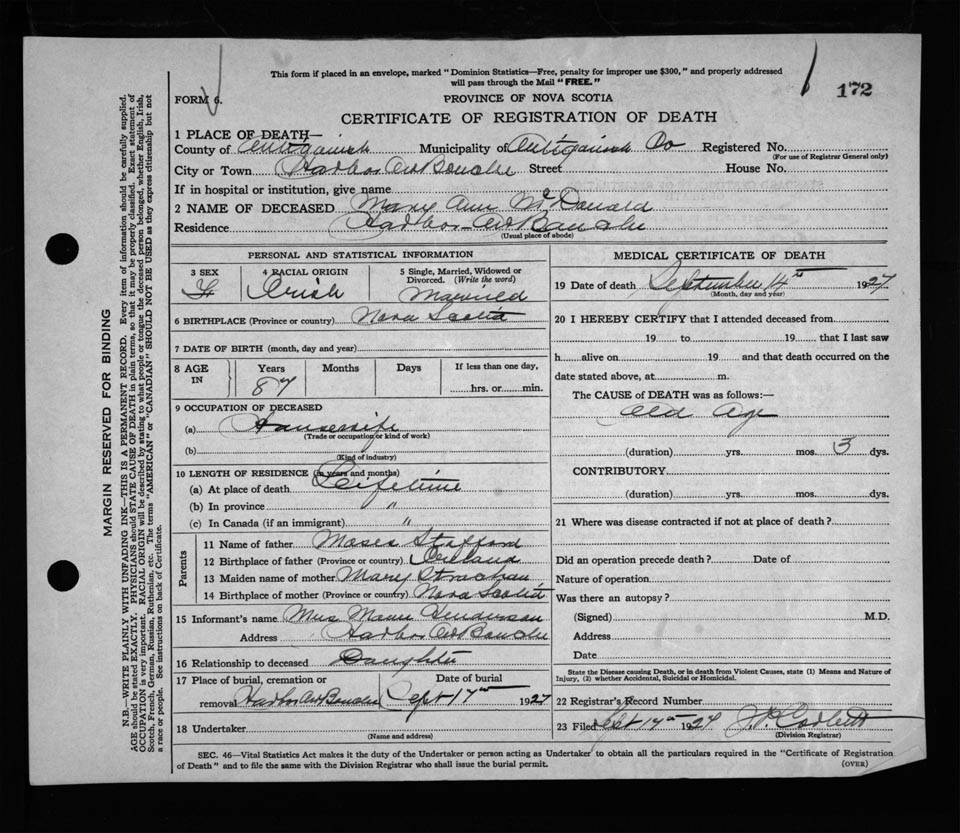 This form if placed in an envelope, marked "Dominion Statistics—Free, penalty for improper use $300," and properly addressed
will pass through the Mail "FREE."
172
FORM 6.
PROVINCE OF NOVA SCOTIA
CERTIFICATE OF REGISTRATION OF DEATH
1 PLACE OF DEATH—
County of Antigonish Municipality of Antigonish Co Registered No.
(For use of Registrar General only)
City or Town Harbor Au Bouche Street House No.
If in hospital or institution, give name
2 NAME OF DECEASED Mary Ann McDonald
Residence Harbor Au Bouche
(Usual place of abode)
PERSONAL AND STATISTICAL INFORMATION
3 SEX 4 RACIAL ORIGIN 5 Single, Married, Widowed or
Divorced. (Write the word)
F Irish Married
6 BIRTHPLACE (Province or country) Nova Scotia
7 DATE OF BIRTH (month, day and year)
8 AGE IN Years Months Days If less than one day,
87 hrs. or min.
9 OCCUPATION OF DECEASED
(a) Housewife
(Trade or occupation or kind of work)
(b)
(Kind of industry)
10 LENGTH OF RESIDENCE (in years and months)
(a) At place of death Lifetime
(b) In province "
(c) In Canada (if an immigrant) "
Parents
11 Name of father Moses Stafford
12 Birthplace of father (Province or country) Ireland
13 Maiden name of mother Mary Strachan
14 Birthplace of mother (Province or country) Nova Scotia
15 Informant's name Mrs Henderson
Address Harbor Au Bouche
16 Relationship to deceased Daughter
17 Place of burial, cremation or Date of burial
removal Harbor Au Bouche Sept 17th 1927
18 Undertaker
(Name and address)
MEDICAL CERTIFICATE OF DEATH
19 Date of death September 14th 1927
(Month, day and year)
20 I HEREBY CERTIFY that I attended deceased from
19 to 19 that I last saw
h alive on 19 and that death occurred on the
date stated above, at m.
The CAUSE of DEATH was as follows:—
Old Age
(duration) yrs. mos. 3 dys.
CONTRIBUTORY
(duration) yrs. mos. dys.
21 Where was disease contracted if not at place of death?
Did an operation precede death? Date of
Nature of operation
Was there an autopsy?
(Signed) M.D.
Address
Date
State the Disease causing Death, or in death from Violent Causes, state (1) Means and Nature of
Injury, (2) whether Accidental, Suicidal or Homicidal.
22 Registrar's Record Number
23 Filed Sept 17th 1927 J. P. Corbett
(Division Registrar)
SEC. 46—Vital Statistics Act makes it the duty of the Undertaker or person acting as Undertaker to obtain all the particulars required in the "Certificate of Registration
of Death" and to file the same with the Division Registrar who shall issue the burial permit.
(OVER)
MARGIN RESERVED FOR BINDING
N.B.—WRITE PLAINLY WITH UNFADING INK—THIS IS A PERMANENT RECORD. Every item of information should be carefully supplied.
AGE should be stated EXACTLY. PHYSICIANS should STATE CAUSE OF DEATH in plain terms, so that it may be properly classified. Exact statement of
OCCUPATION is very important. RACIAL ORIGIN will be described by stating to what people or tongue the deceased person belonged, whether English, Irish,
Scotch, French, German, Russian, Ruthenian, etc. The terms "AMERICAN" or "CANADIAN" SHOULD NOT BE USED as they express citizenship but not
a race or people. See instructions on back of Certificate.